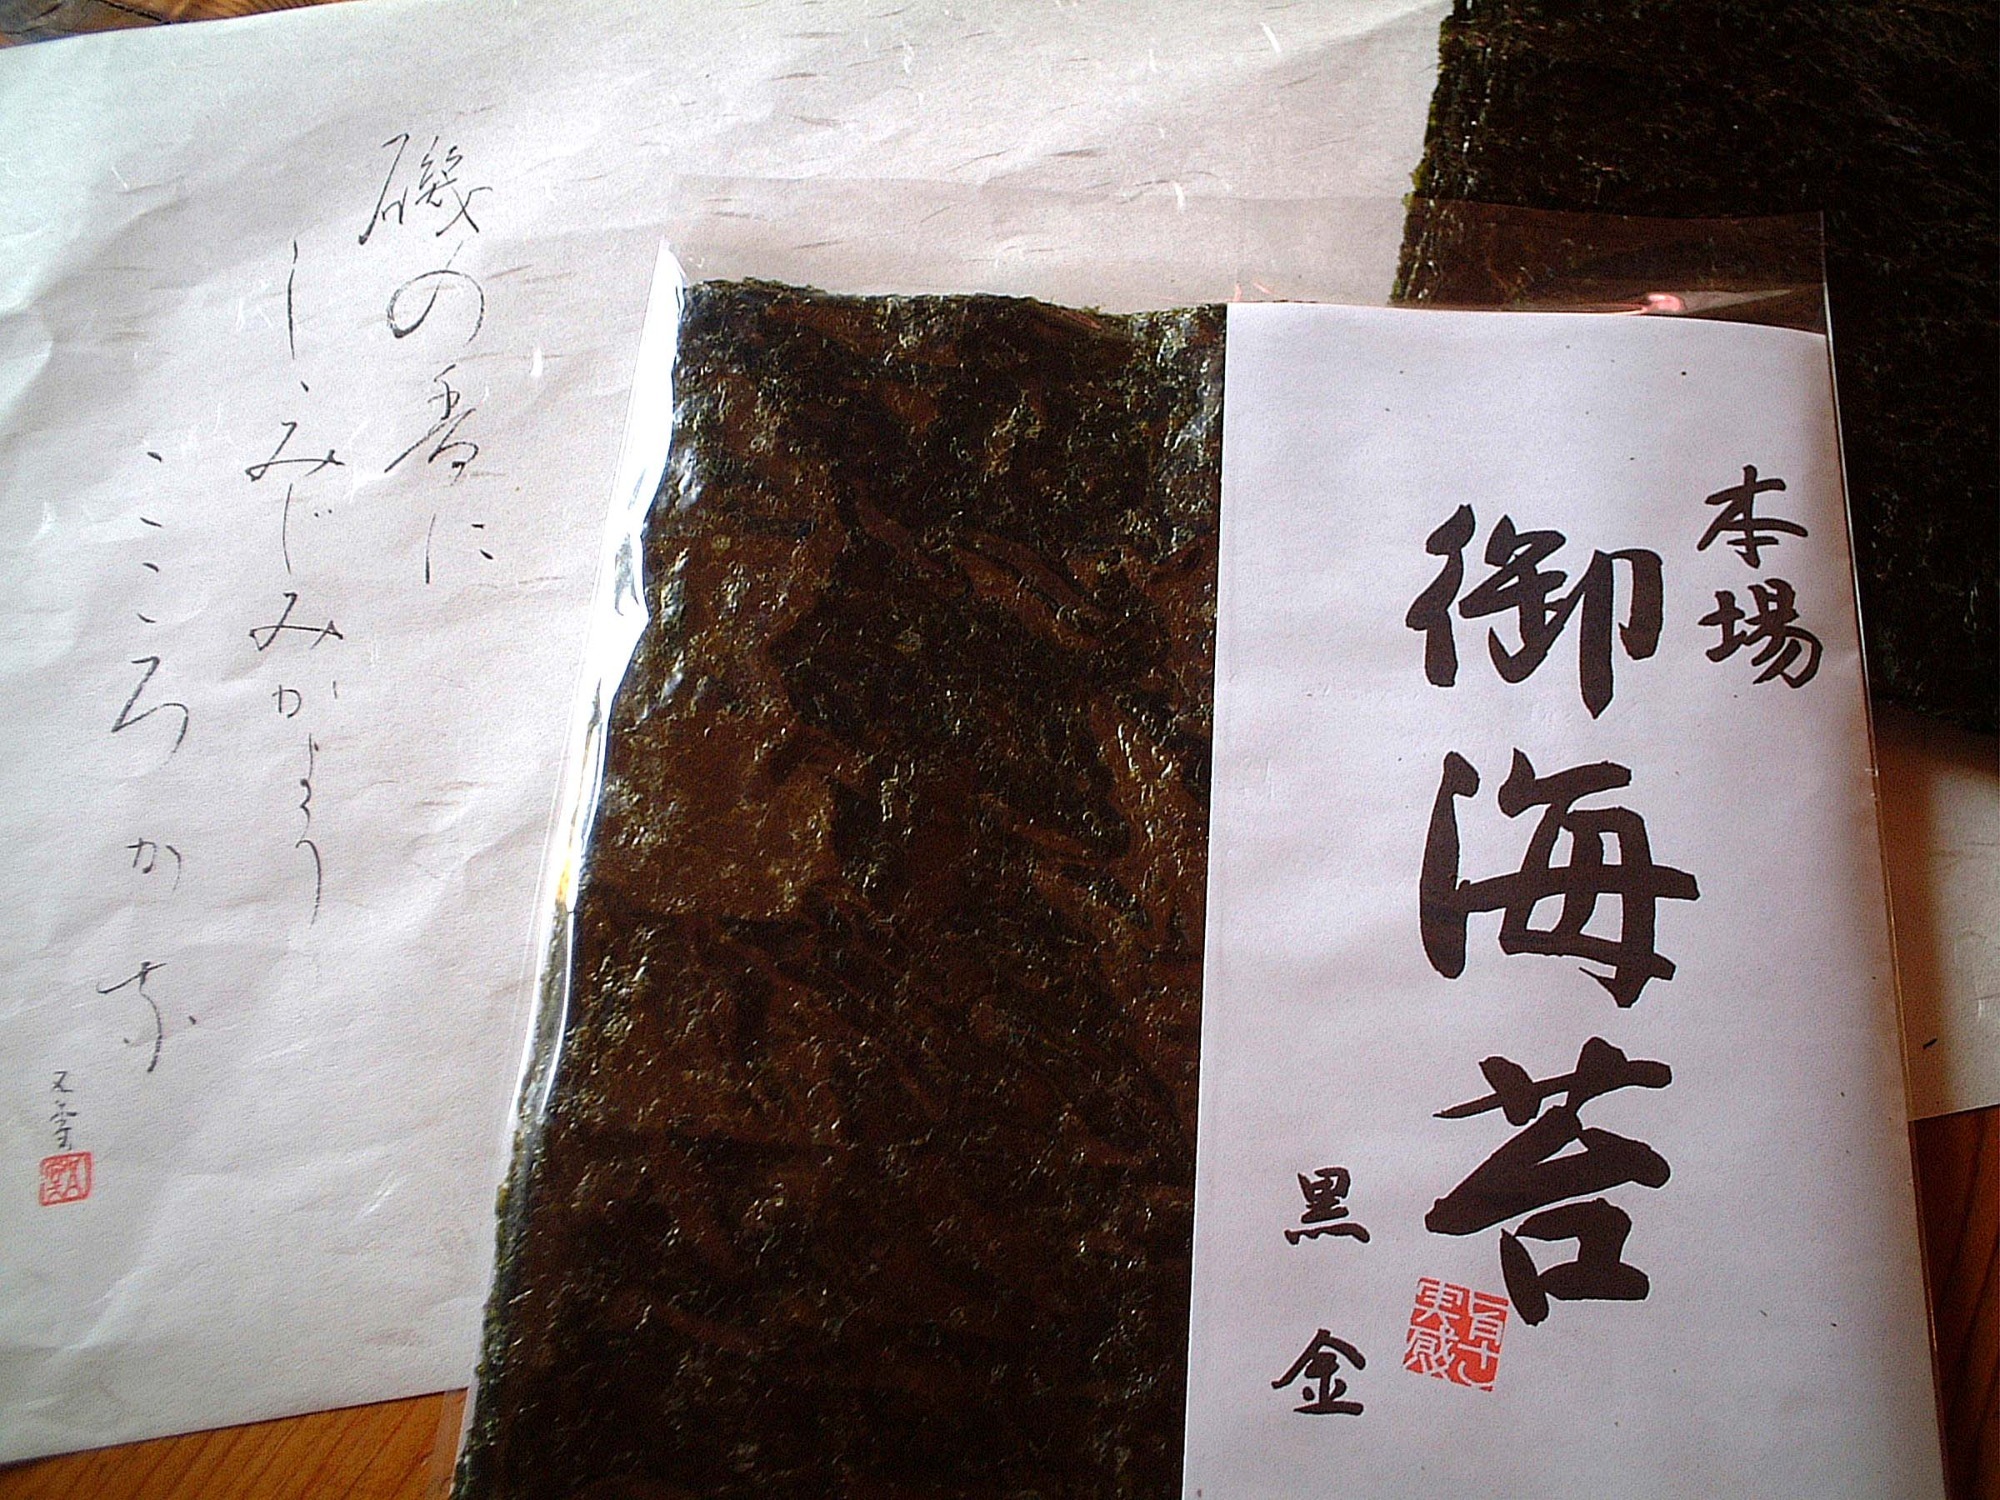 本場
御海苔
黒金
磯の香に
しみじみがよう
こころかな